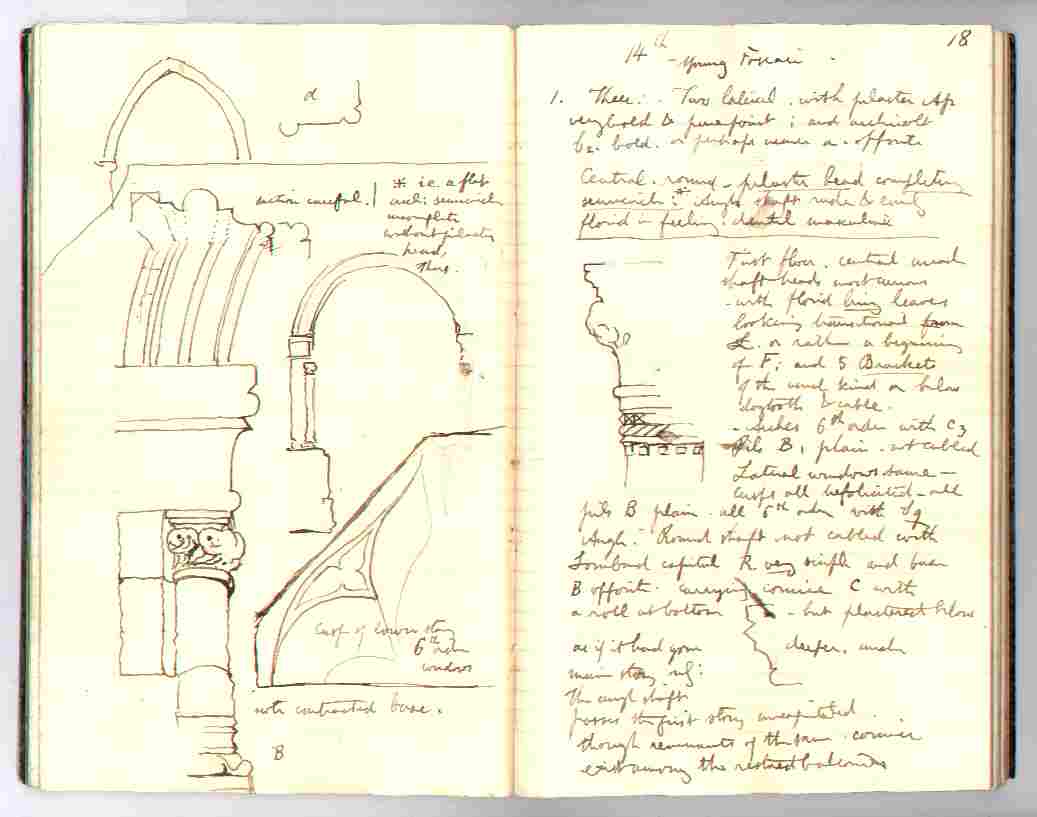 a
section careful.
* i.e. a flat
arch: semicircle
incomplete
without pilaster
head,
thus.
Cusp of lower story
6th order
windows
note contracted base.
B
18
14th
- Young Foscari -
1. Three: Two lateral. with pilaster
very bold & pure point; and archivolt
be. bold. or perhaps a. opposite
Central. round - pilaster head completing
semicircle:* Angle shaft &
florid in feeling. dentil masculine
First floor. central
shaft heads most curious
- with florid leaves
looking transitional from
or rather a beginning
of F; and 5 Brackets
of the usual kind on below
dogtooth & cable.
- Arches 6th order with C3
Pils B, plain. not cabled
Lateral windows same -
cusps all -all
pils B plain. all 6th order with Sq
Angle: Round shaft not cabled with
Lombard capital R very simple and base
B opposite. carrying cornice C with
a roll at bottom - but below
as if it had gone deeper. under
main story.
The angle shaft
passes the first story
though remnants of the same cornice
exist among the restored balconies